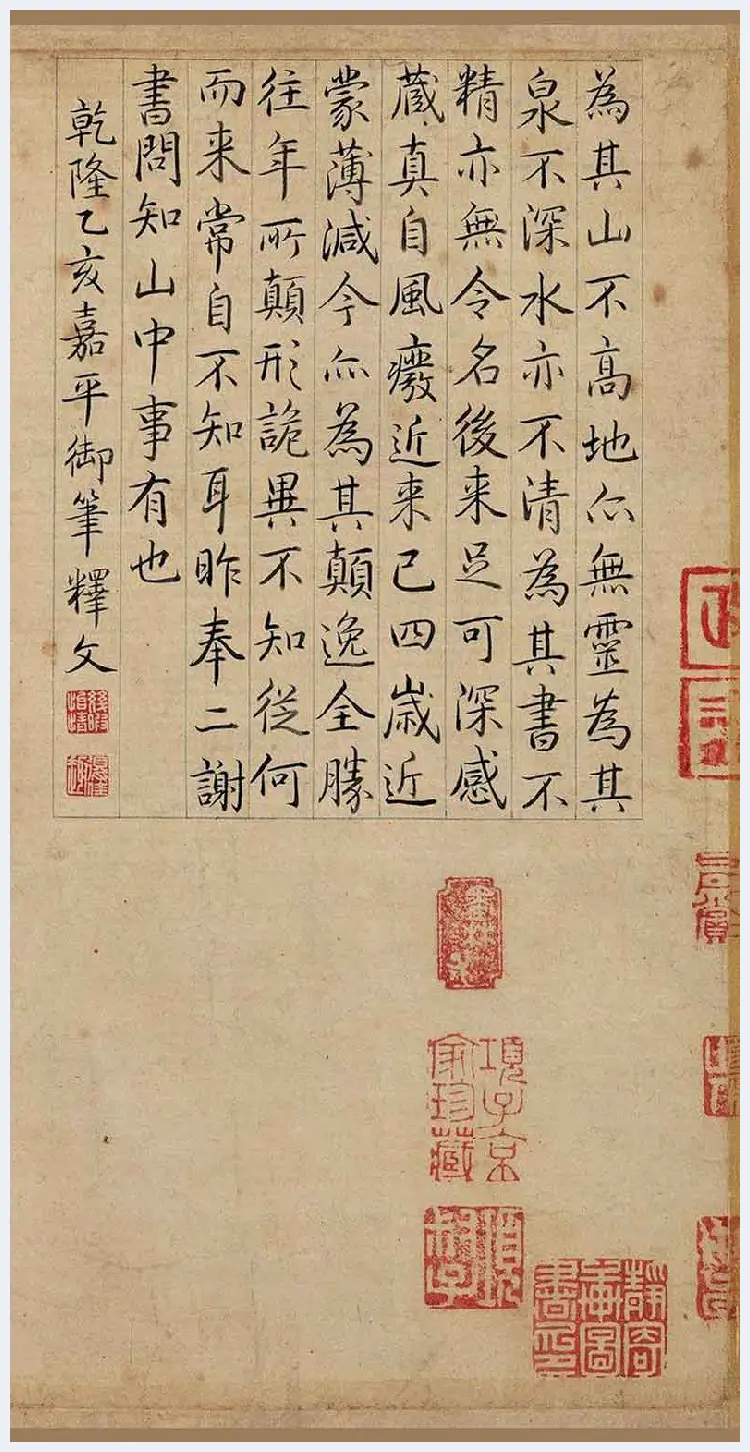 為其山不高地亦無靈為其
泉不深水亦不清為其書不
精亦無令名後来足可深感
藏真自風癈近来已四歲近
蒙薄減今亦為其顛逸全勝
往年所顛形詭異不知從何
而来常自不知耳昨奉二謝
書問知山中事有也
乾隆乙亥嘉平御筆釋文
項子京
家珍藏